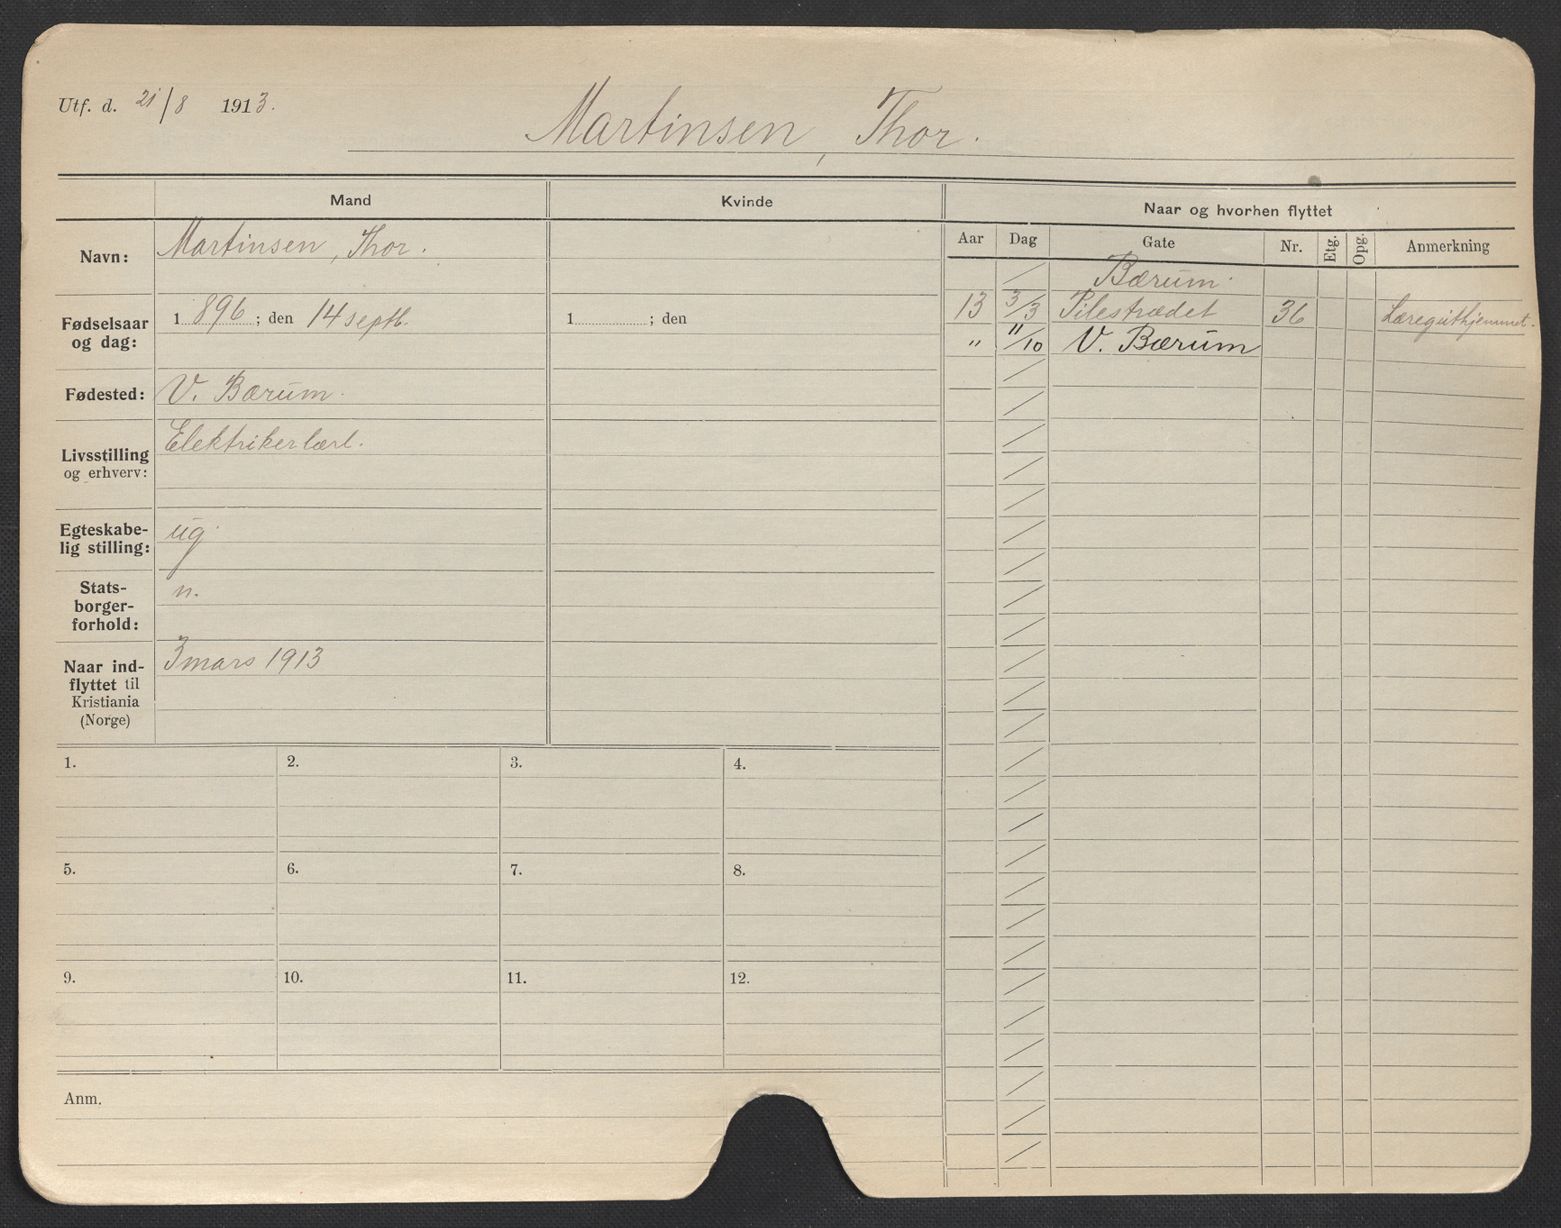 Utf. d. 21/8 1913.
Martinsen, Thor.
Mand
Kvinde
Naar og hvorhen flyttet
Aar Dag Gate Nr. Etg. Opg. Anmerkning
Navn: Martinsen, Thor.
Fødselsaar og dag: 1896; den 14 septb. 1 ; den
Fødested: V. Bærum.
Livsstilling og erhverv: Elektrikerlærl.
Egteskabe-
lig stilling: ug.
Stats-
borger-
forhold: n.
Naar ind-
flyttet til
Kristiania
(Norge) 3 mars 1913
Bærum.
13 3/3 Pilestrædet 36 Læreguthjemmet.
" 11/10 V. Bærum
1. 2. 3. 4.
5. 6. 7. 8.
9. 10. 11. 12.
Anm.